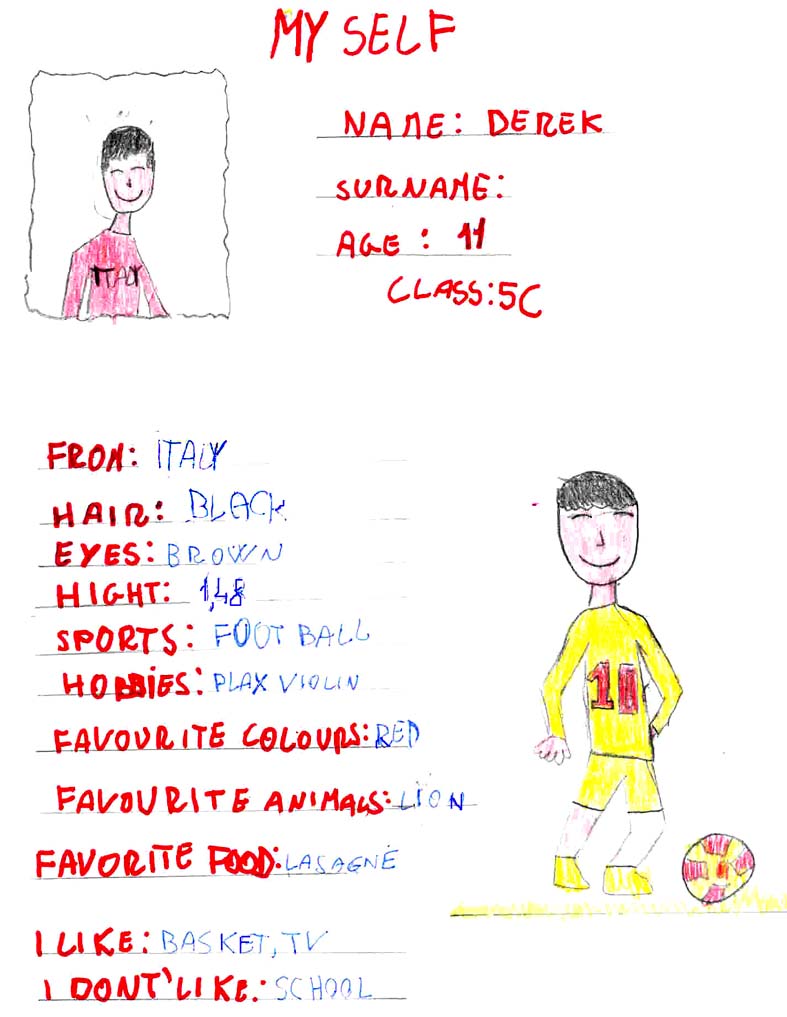 MY SELF
ITALY
NAME: DEREK
SURNAME:
AGE: 11
CLASS: 5C
FROM: ITALY
HAIR: BLACK
EYES: BROWN
HIGHT: 1,48
SPORTS: FOOT BALL
HOBBIES: PLAY VIOLIN
FAVOURITE COLOURS: RED
FAVOURITE ANIMALS: LION
FAVORITE FOOD: LASAGNE
I LIKE: BASKET, TV
I DONT' LIKE: SCHOOL